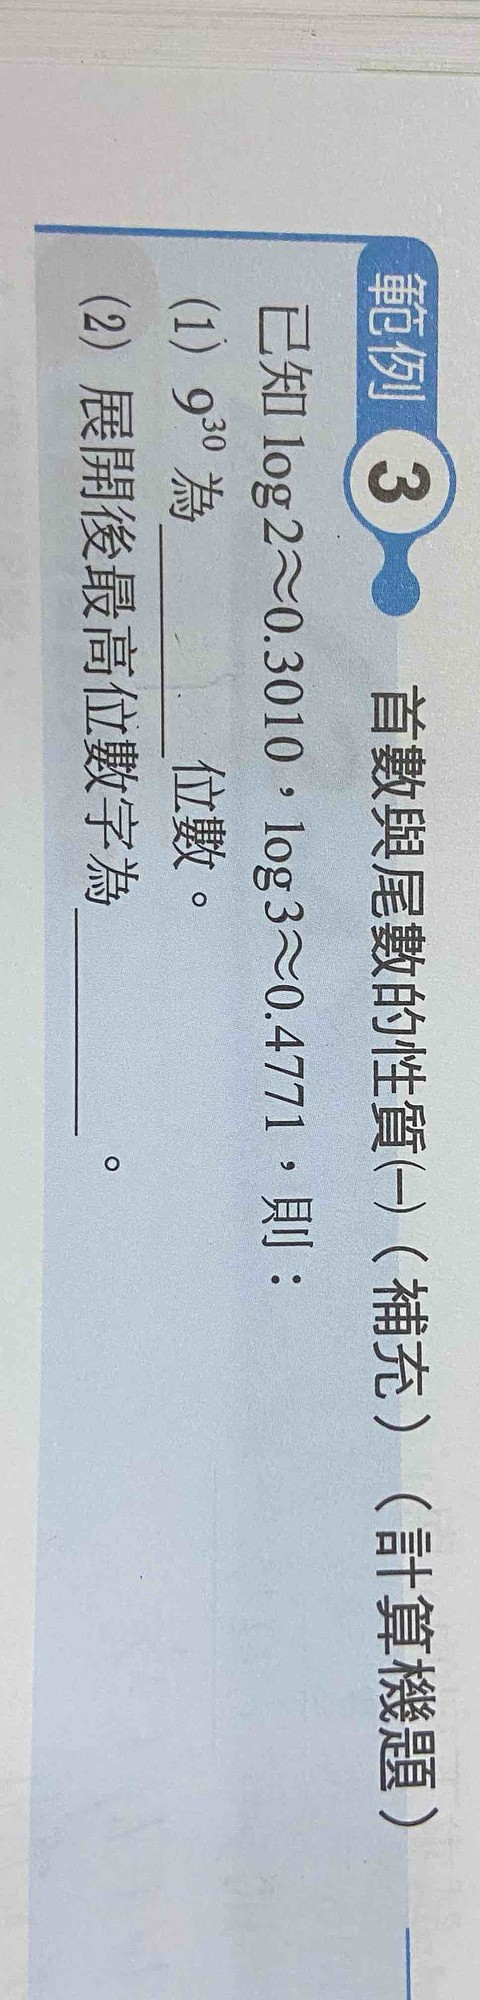 範例 3 首數與尾數的性質㈠（補充）（計算機題）
已知 log2≈0.3010，log3≈0.4771，則：
(1) 9³⁰ 為＿＿＿＿位數。
(2) 展開後最高位數字為＿＿＿＿。